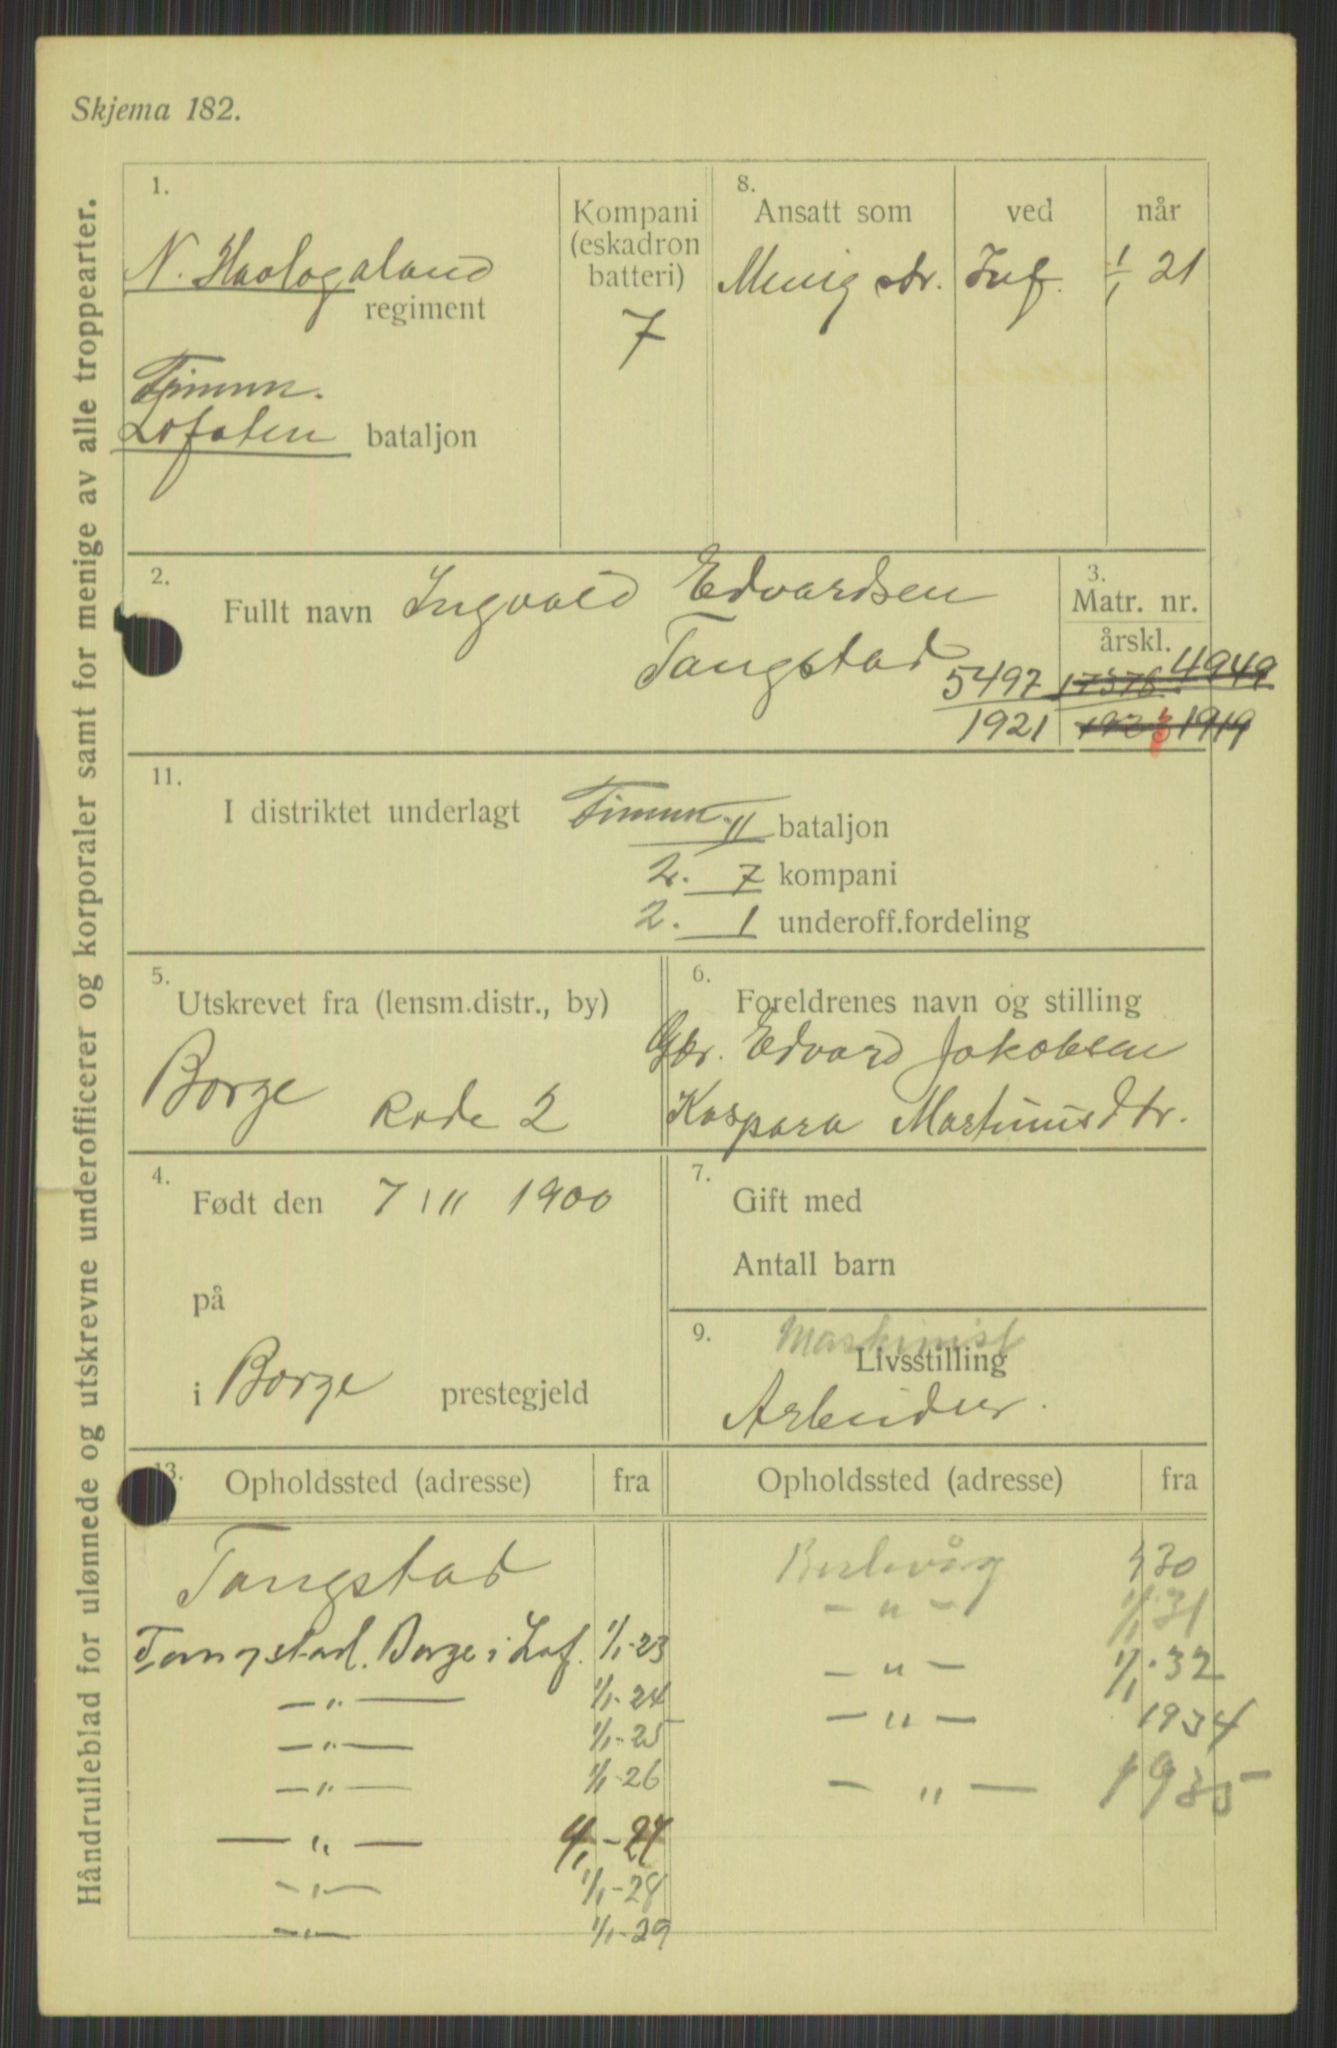 Skjema 182.
Håndrulleblad for ulønnede og utskrevne underofficerer og korporaler samt for menige av alle troppearter.
1.
N. Haalogaland
regiment
Lofoten bataljon
Kompani
(eskadron
batteri)
7
8.
Ansatt som ved når
Menig str. Inf. 1/1 21
2.
Fullt navn Ingvald Edvardsen
Tangstad
3.
Matr. nr.
årskl.
5497 17378 4949
1921 1923 1919
11.
I distriktet underlagt II bataljon
2. 7 kompani
2. 1 underoff.fordeling
5.
Utskrevet fra (lensm.distr., by)
Borge Rode 2
6.
Foreldrenes navn og stilling
Gbr. Edvard Jakobsen
Kaspara Martinusdtr.
4.
Født den 7/11 1900
på
i Borge prestegjeld
7.
Gift med
Antall barn
9.
Maskinist
Livsstilling
Arbeider.
13.
Opholdssted (adresse) fra
Tangstad
Tangstad. Borge i Lof. 1/1-23
— " — 1/1-24
— " — 1/1-25
— " — 1/1-26
— " — 1/1-27
— " — 1/1-28
— " — 1/1-29
Opholdssted (adresse) fra
Berlevåg 30
— " — 1/1 31
— " — 1/1-32
— " — 1934
— " — 1935